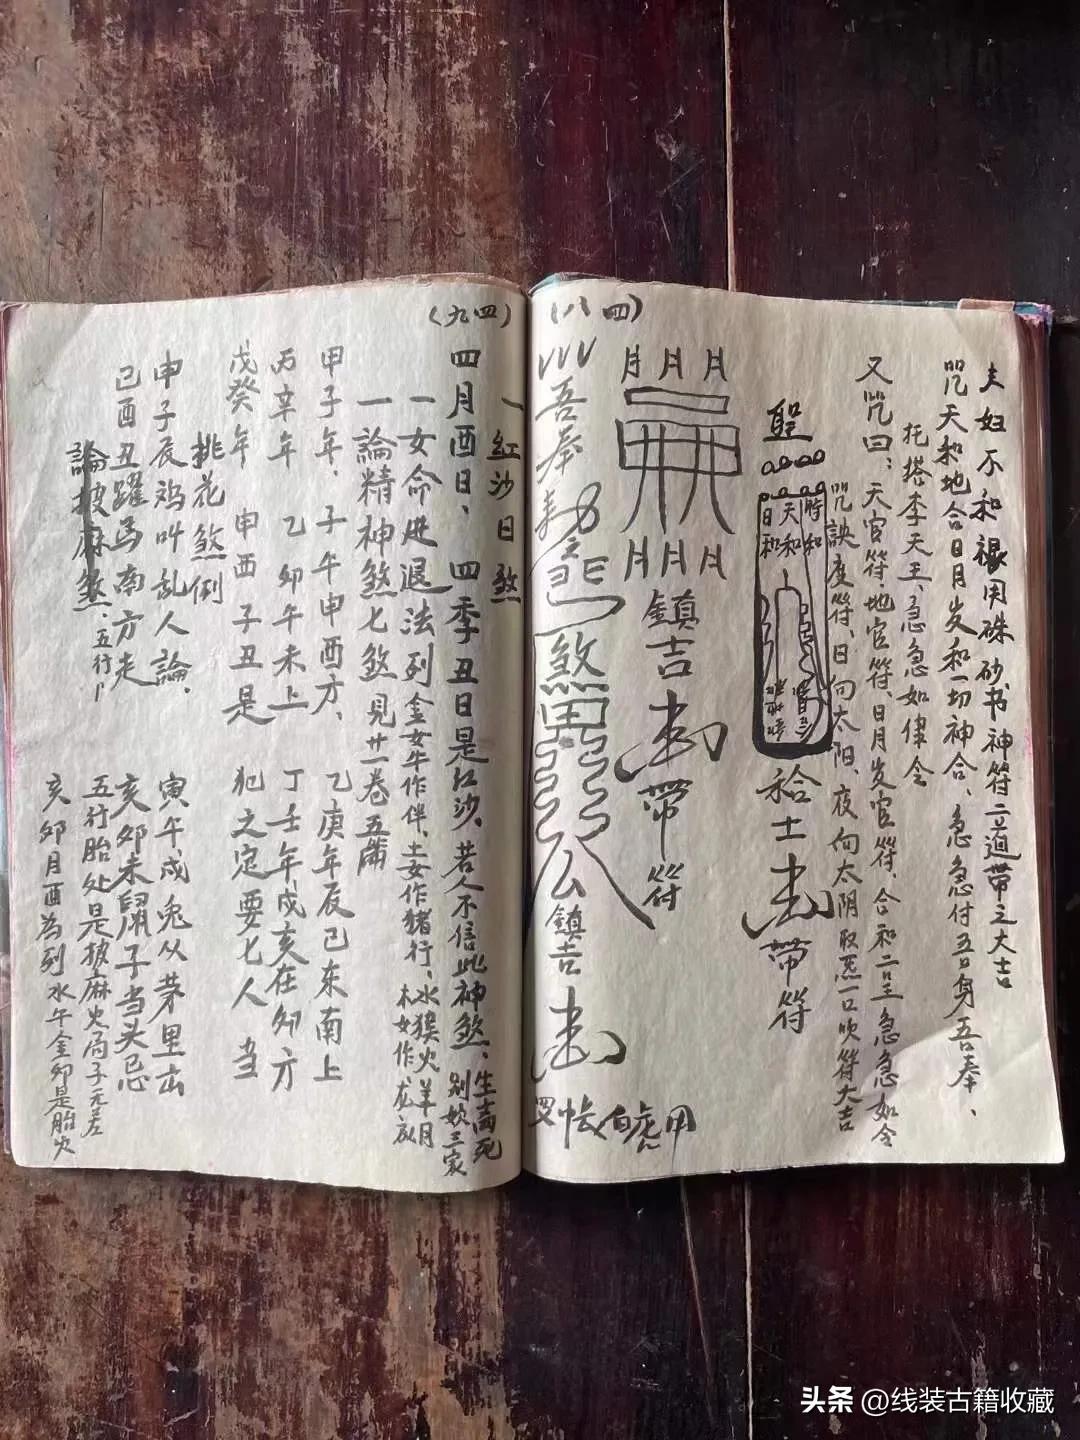 夫妇不和禳用硃砂书神符二道带之大吉
咒天和地合日月岁和一切神合、急急付吾身吾奉、
托搭李天王、急急如律令
又咒曰:天官符、地官符、日月岁官符、合和二呈急急如令
咒訣度符、日向太阳、夜向太阴取炁一口吹符大吉
時和
天和
日和
士
帶符
(八四)
月月月
月月月
鎮吉
帶符
吾奉
煞
鎮吉
(九四)
一紅沙日煞
四月酉日、四季丑日是红沙、若人不信此神煞、生南死别奻三家
一女命进退法列金女牛作伴、土女作猪行、水猴火羊月木女作龙
一論精神煞七煞見廿一卷五
甲子年、子午申酉方、乙庚年辰己东南上
丙辛年 乙卯午未上 丁壬年戌亥在卯方
戊癸年 申酉子丑是 犯之定要七人当
桃花煞例
申子辰鸡叫乱人論、寅午戌兔从茅里出
己酉丑躍馬南方走 亥卯未鼠子当头忌
論披麻煞、五行
五行胎处是披麻火局子元差
亥卯月酉為到水午金卯是胎火
头条 @线装古籍收藏